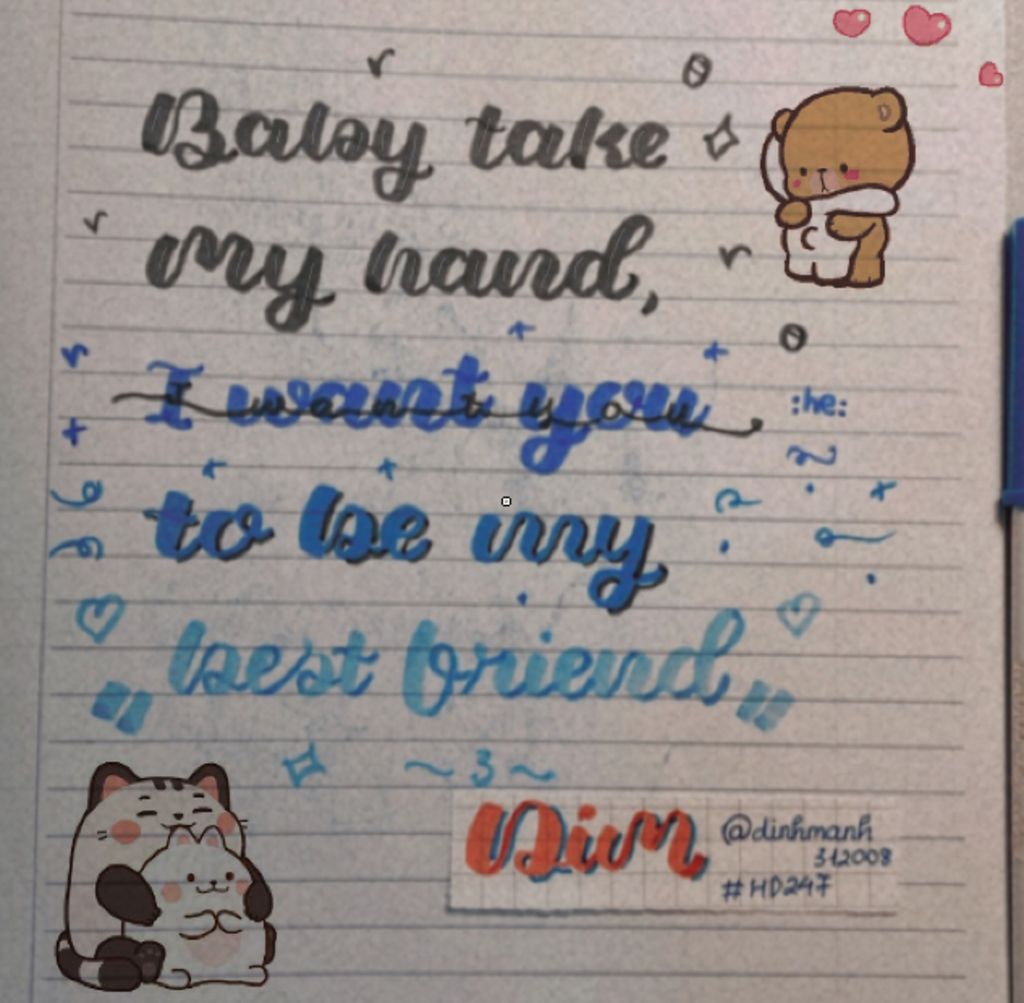 Baby take
my hand,
I want you
I want you
:he:
to be my
"best friend"
~ 3 ~
DinM
@dinhmanh
312008
#HD247